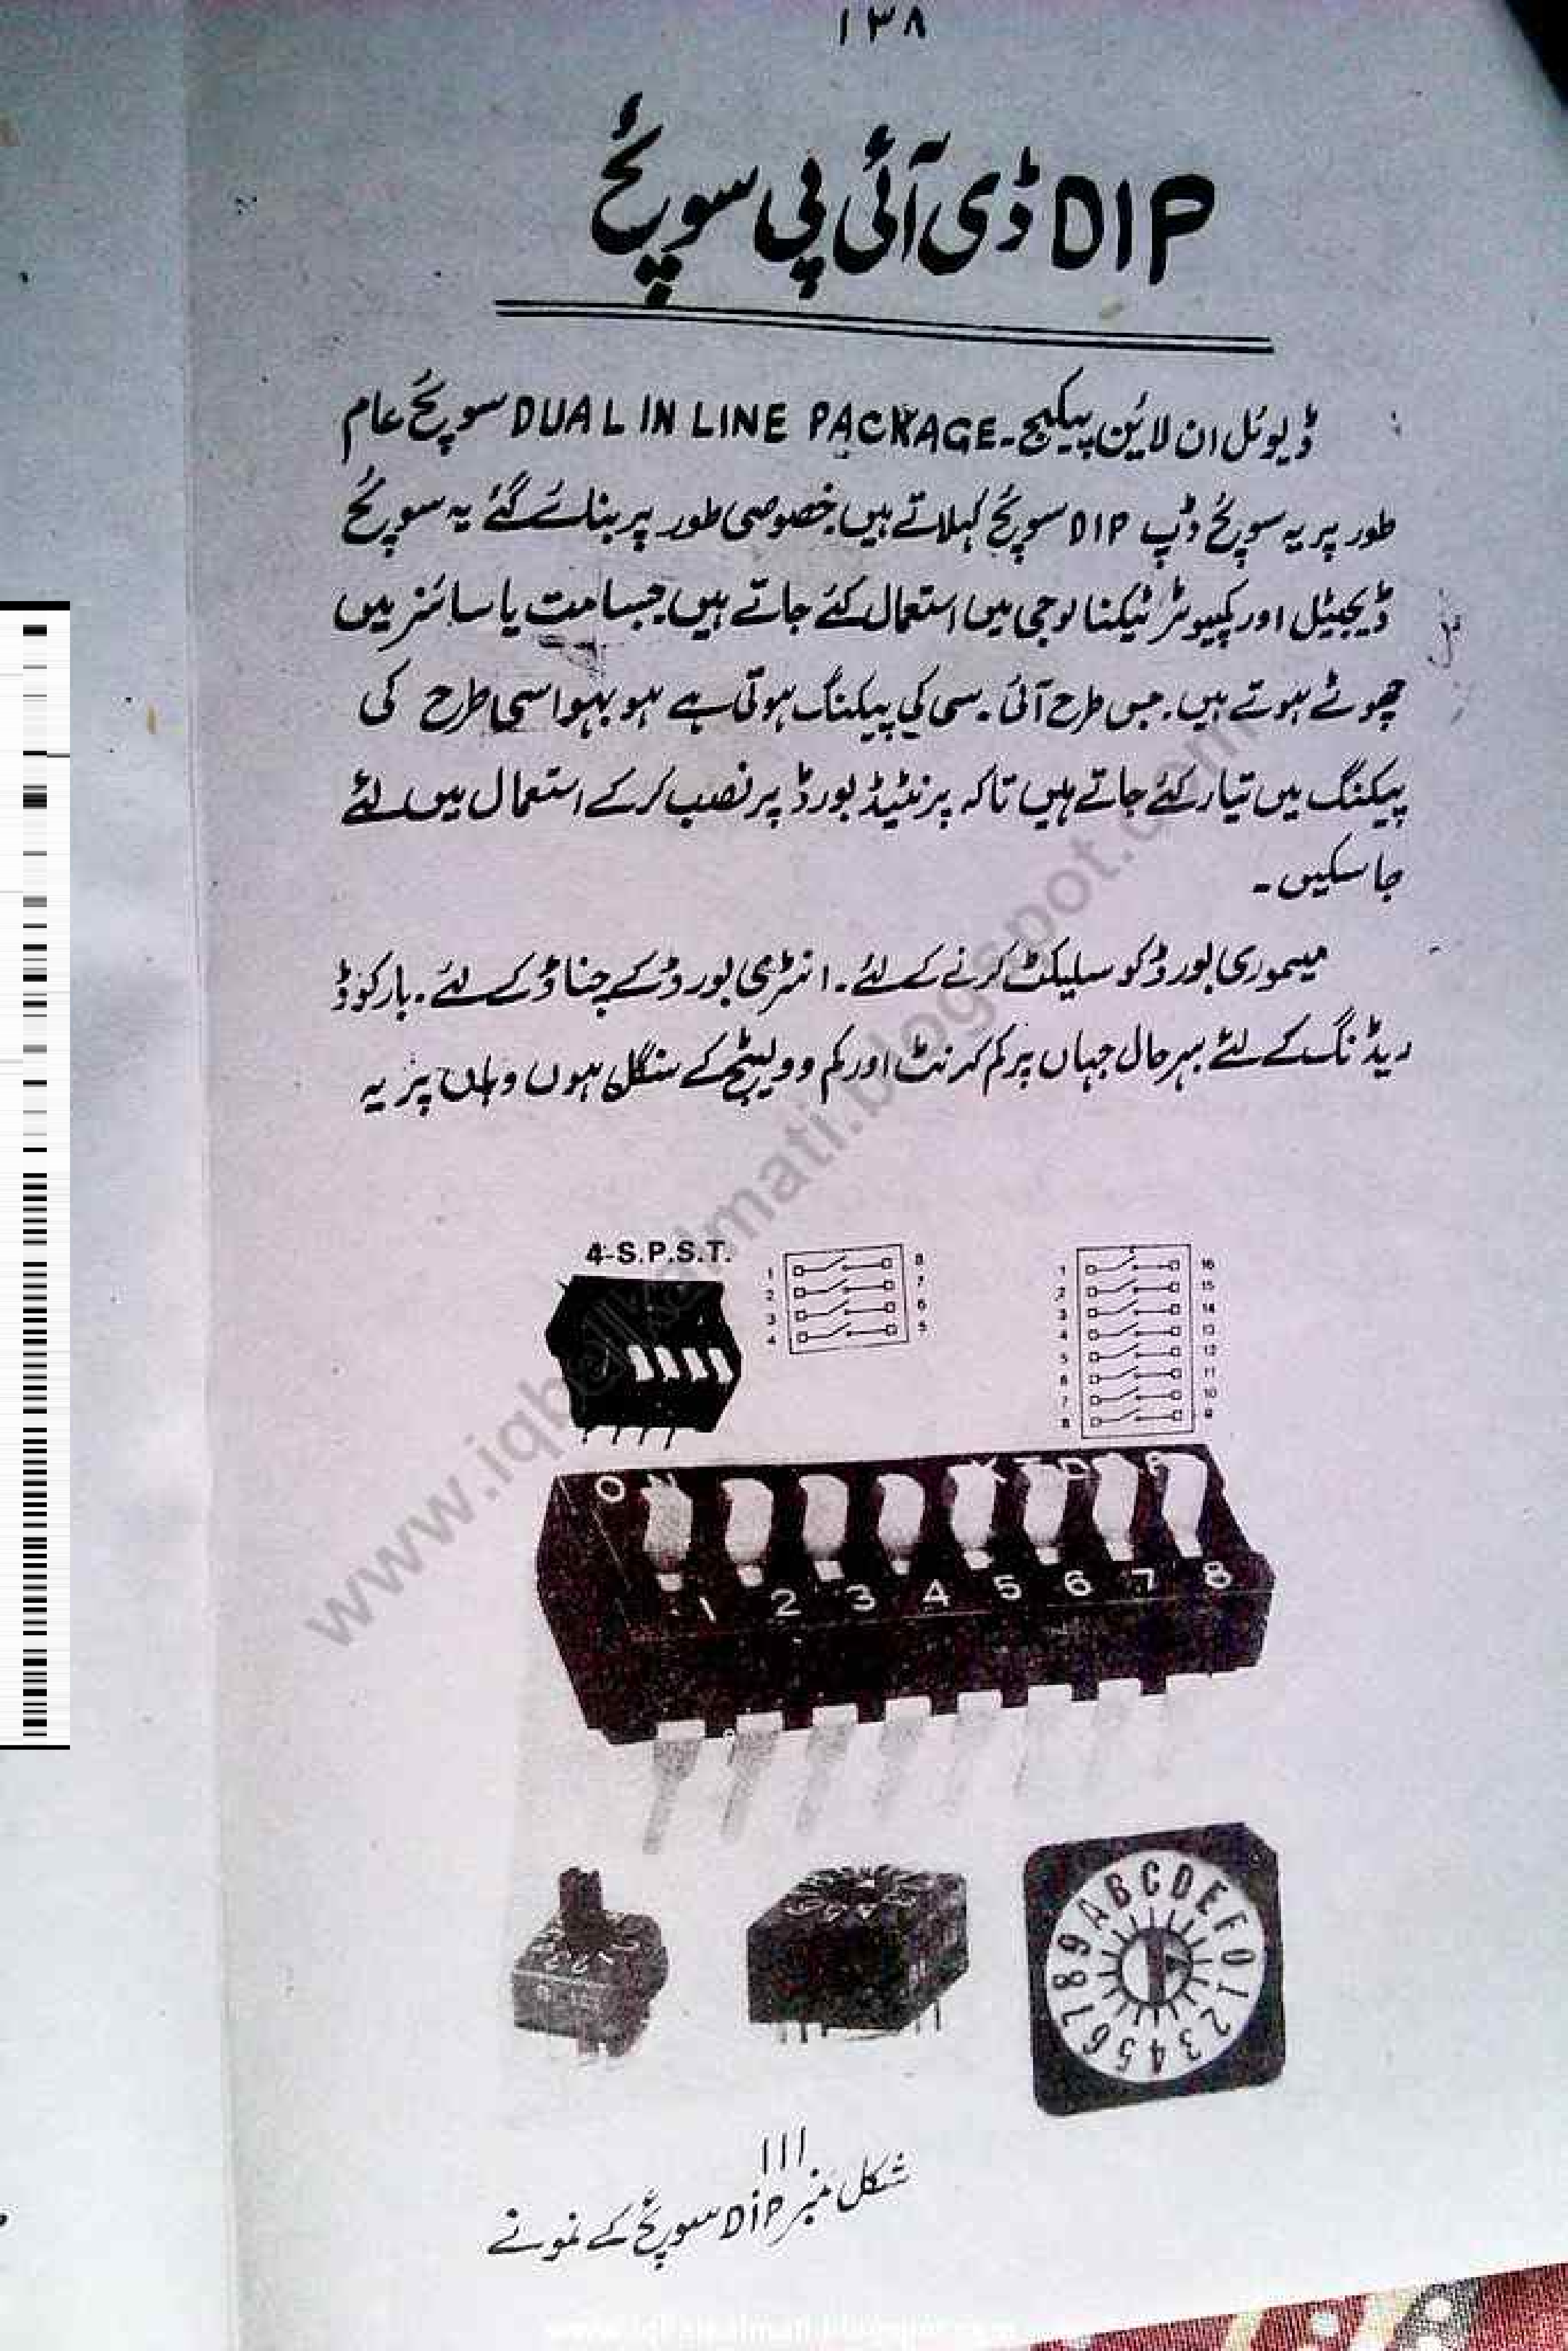 ۱۳۸
DIP ڈی آئی پی سوئچ
ڈیوئل ان لائین پیکیج۔ DUAL IN LINE PACKAGE سوئچ عام
طور پر یہ سوئچ ڈپ DIP سوئچ کہلاتے ہیں۔ خصوصی طور پر بنائے گئے یہ سوئچ
ڈیجیٹل اور کمپیوٹر ٹیکنالوجی میں استعمال کئے جاتے ہیں۔ جسامت یا سائز میں
چھوٹے ہوتے ہیں۔ جس طرح آئی۔سی کی پیکنگ ہوتی ہے ہو بہو اسی طرح کی
پیکنگ میں تیار کئے جاتے ہیں تاکہ پرنٹیڈ بورڈ پر نصب کر کے استعمال میں لئے
جا سکیں۔
میموری بورڈ کو سلیکٹ کرنے کے لئے۔ انٹری بورڈ کے چناؤ کے لئے۔ بارکوڈ
ریڈنگ کے لئے بہرحال جہاں پر کم کرنٹ اور کم وولیٹج کے سنگل ہوں وہاں پر یہ
4-S.P.S.T.
1 8
2 7
3 6
4 5
1 16
2 15
3 14
4 13
5 12
6 11
7 10
8 9
O N
1 2 3 4 5 6 7 8
0 1 2 3 4 5 6 7 8 9 A B C D E F
شکل نمبر ۱۱۱
DIP سوئچ کے نمونے
www.iqbalkalmati.blogspot.com